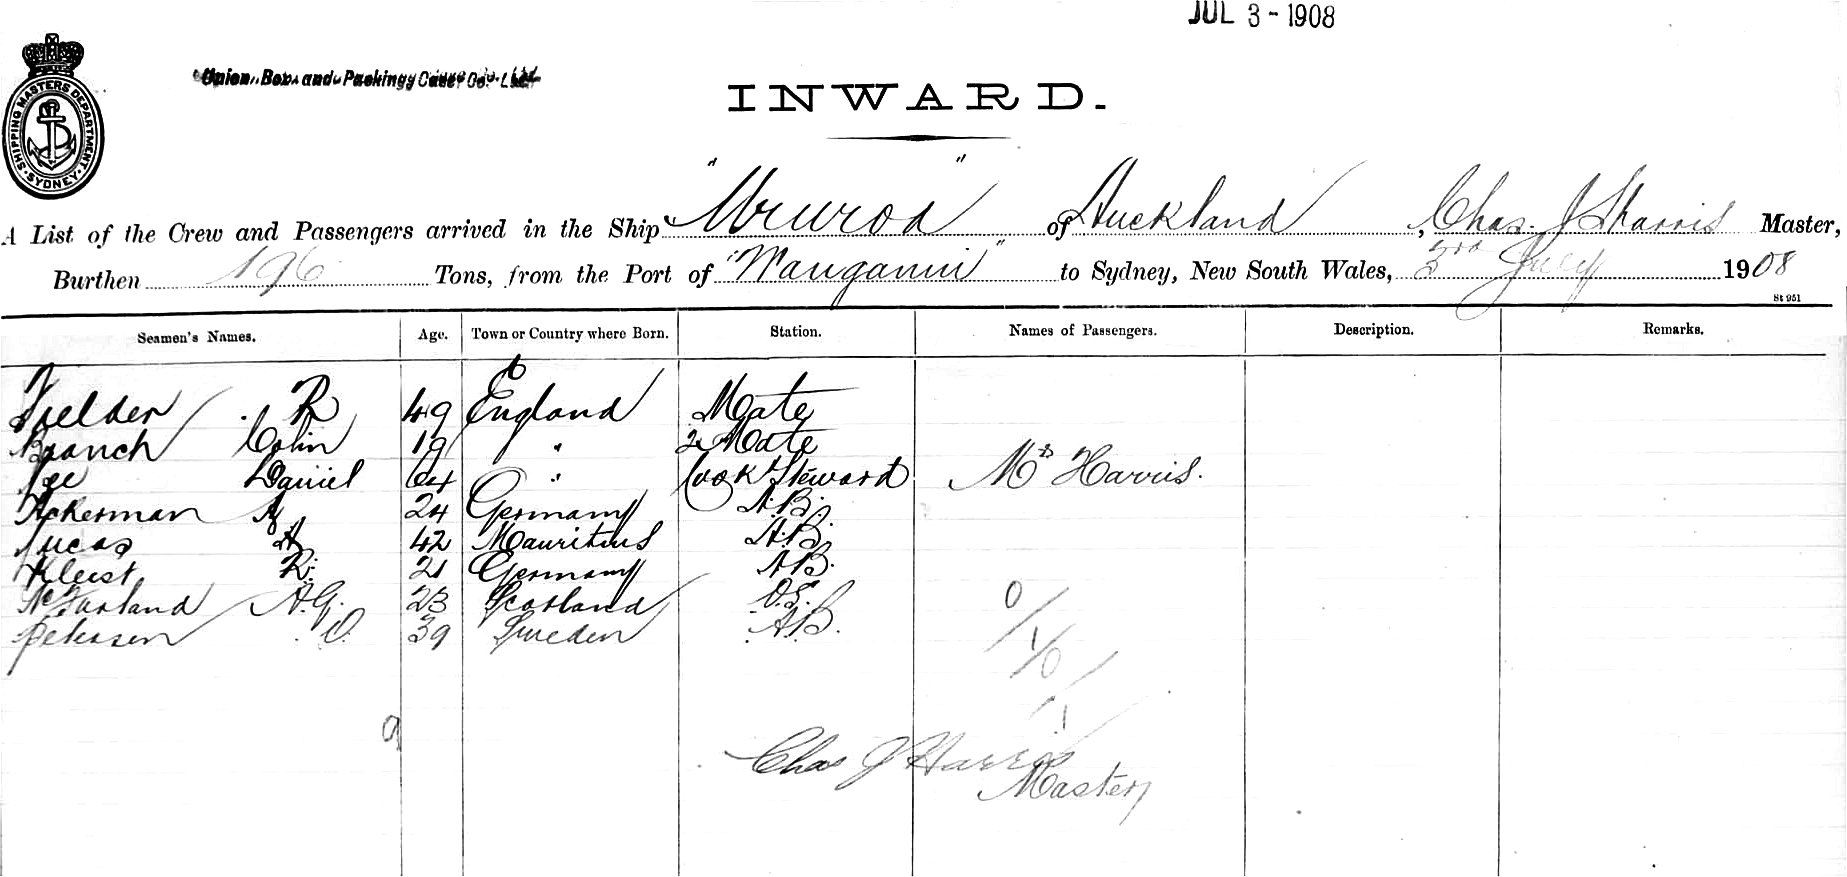 JUL 3 - 1908
SHIPPING MASTERS DEPARTMENT
SYDNEY
Union Box and Packing Case Co. Ltd
INWARD.
A List of the Crew and Passengers arrived in the Ship of Auckland, Chas. J Harris Master,
Burthen 196 Tons, from the Port of "Wanganui" to Sydney, New South Wales, 3rd July 1908
St 951
Seamen's Names. Age. Town or Country where Born. Station. Names of Passengers. Description. Remarks.
Fielder R 49 England Mate
Branch Colin 19 " 2 Mate
Lee Daniel 64 " Cook & Steward Mrs Harris.
Ackerman A 24 Germany A.B.
Lucas A 42 Mauritius A.B.
Kleist R. 21 Germany A.B.
McFarland A.G. 23 Scotland O.S.
Petersen O. 39 Sweden A.B.
0/1/0/1
9
Chas J Harris
Master